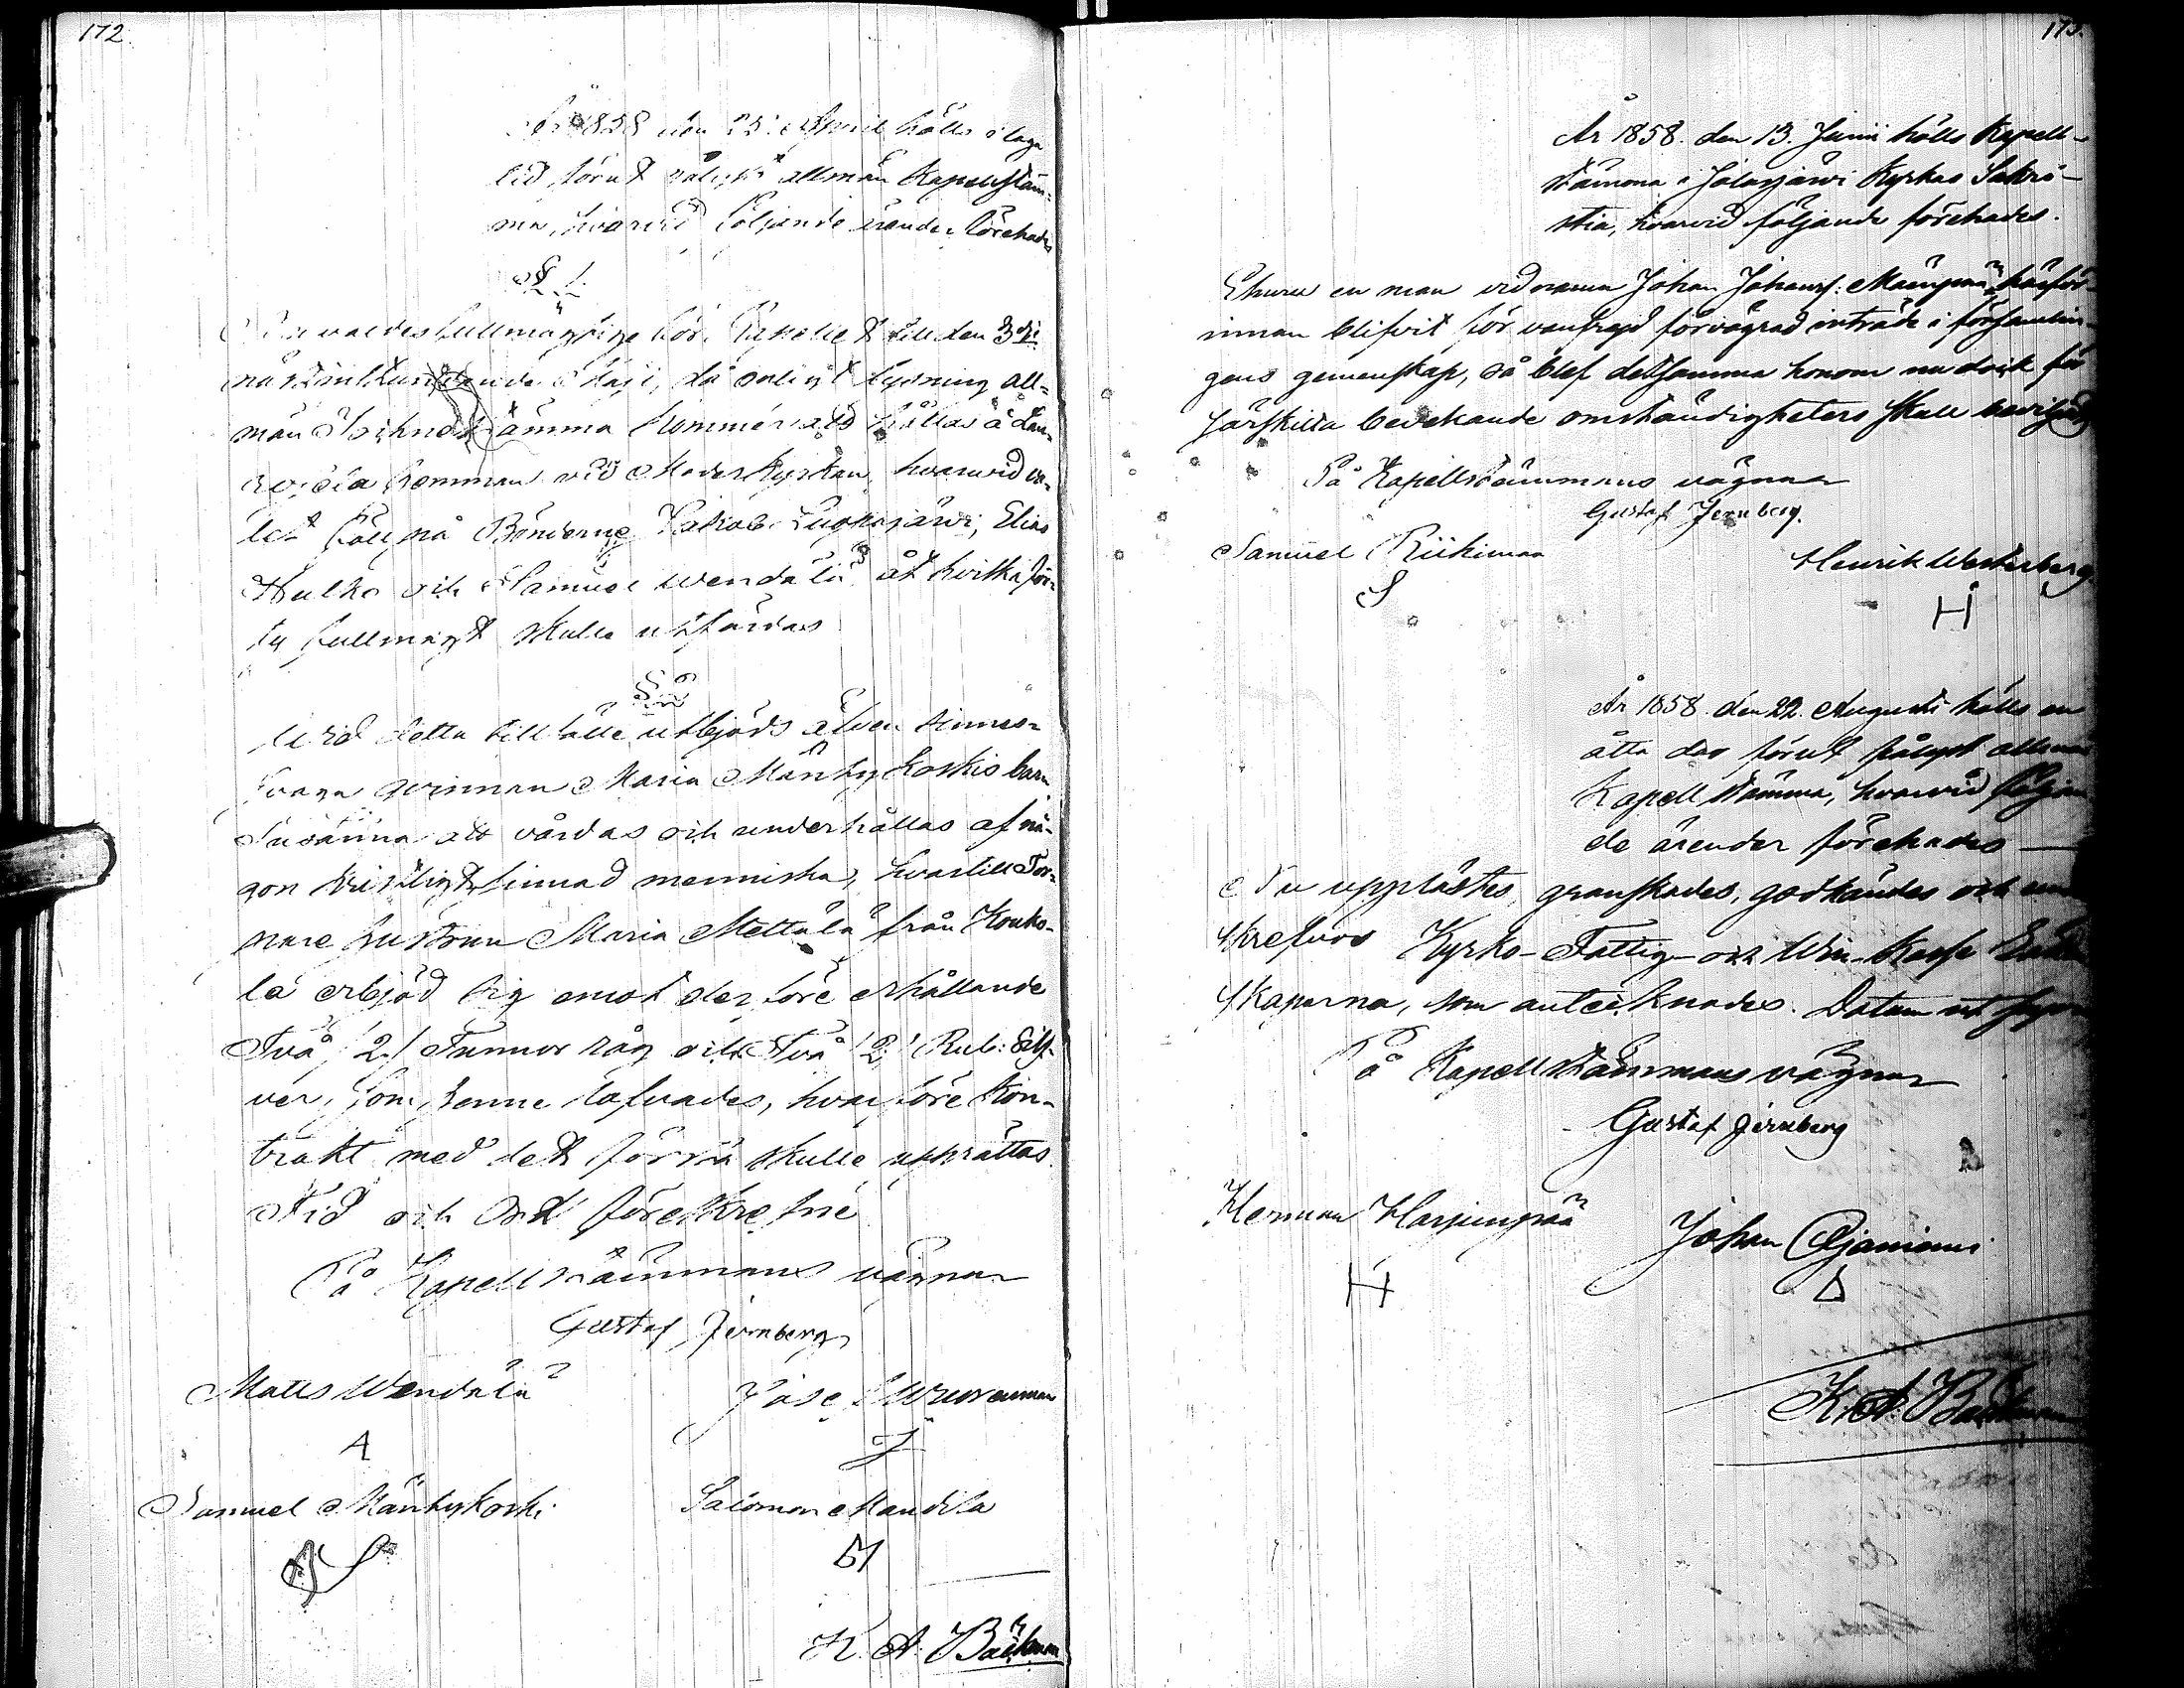 172.
År 1858 den 25 April hölls i laga
tid förut pålyst allmän Kapellstäm-
ma, hvarvid följande ärender förehades
§ 1.
valdes fullmäktige för Kapellet till den 3die
nästinstundande Maji, då enligt lysning all-
män Sockne stämma kommer att hållas å Lan-
hemman vid Moderkyrkan, hvarvid va-
let föll på Bönderne Jakob Luopajärvi, Elias
Hulko och Samuel Wendälä, åt hvilka för-
ty fullmagt skulle utfärdas
§ 2
Wid detta tillfälle utbjöds äfven sinnes-
svaga qvinnan Maria Mäntykoskis barn
Susanna att vårdas och underhållas af nå-
gon kristligt sinnad menniska, hvartill Tor-
pare hustrun Maria Mettälä från Kouko-
la erbjöd sig emot derföre erhållande
Två /2/ Tunnor råg och Två /2/ Rub: Silf-
ver, som henne lofvades, hvarföre Kon-
trakt med det förra skulle upprättas.
Tid och Ort föreskrefne
På Kapellstämmans vägnar
Gustaf Jernberg
Matts Wendälä
Samuel Mäntykoski
Salomon Mandila
K. A. Bäckman
173.
År 1858. den 13. Junii hölls Kapell-
stämma i Jalasjärvi Kyrkas Sakri-
stia, hvarvid följande förehades.
Ehuru en man vid namn Johan Johansf: Mäenpää härför-
innan blifvit för vanfrejd förvägrad inträde i församlin-
gens gemenskap, så blef detsamma honom nu dock för
särskilda bevekande omständigheters skull beviljadt
På Kapellstämmans vägnar
Gustaf Jernberg.
Samuel Riihimaa
S
Henrik Westerberg
H
År 1858. den 22. Augusti hölls en
åtta dar förut pålyst allmän
Kapell stämma, hvarvid följan
de ärender förehades
Nu upplästes, granskades, godkändes och un
skrefvos Kyrko- Fattig- och Win-Kasse
skaperna, som antecknades. Datum ut supra
På Kapellstämmans vägnar
Gustaf Jernberg
Herman Harjunpää
H
Johan Ojaniemi
K. A. Bäckman